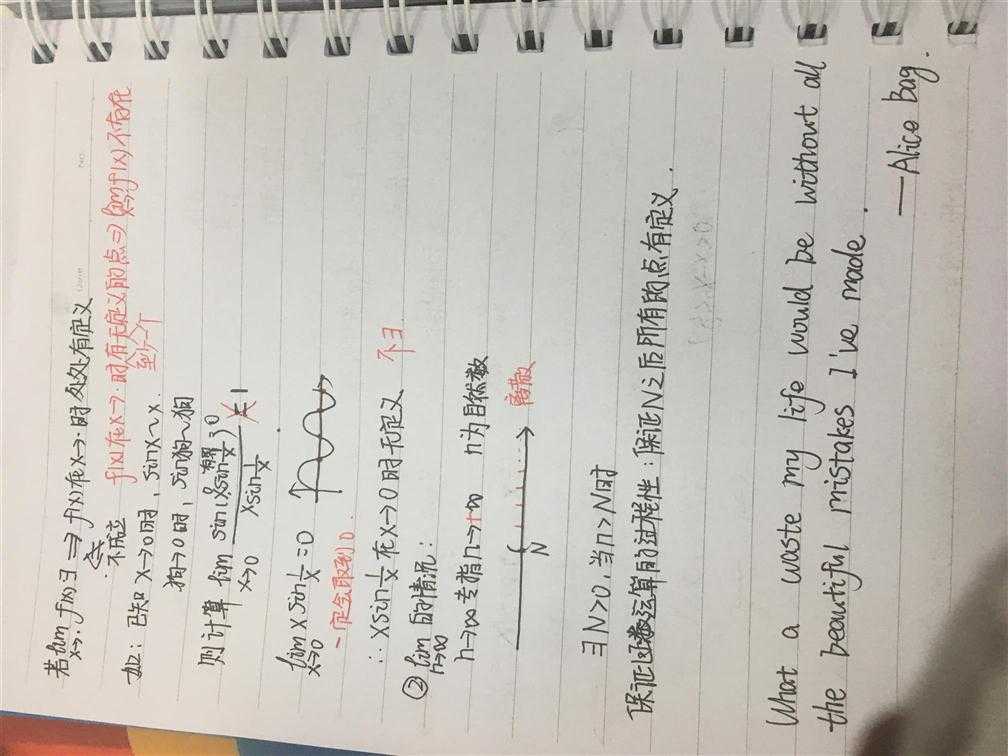 NO.
Date
若lim f(x)∃ ⇒ f(x)在x→·时处处有定义
x→·
不成立 f(x)在x→·时有无定义的点⇒lim f(x)不存在
x→·
至少一个
如:已知x→0时,sinx~x.
狗→0时,sin狗~狗
则计算 lim sin(x sin 1/x) / x sin 1/x = 1
x→0
有界
0
lim x sin 1/x = 0
x→0
一定会取到0
∴ x sin 1/x 在x→0时无定义 不∃
② lim 的情况:
n→∞
n→∞专指n→+∞ n为自然数
N 离散
∃N>0,当n>N时
保证函数运算的过程性:保证N之后所有的点有定义.
What a waste my life would be without all
the beautiful mistakes I've made.
—Alice bag.